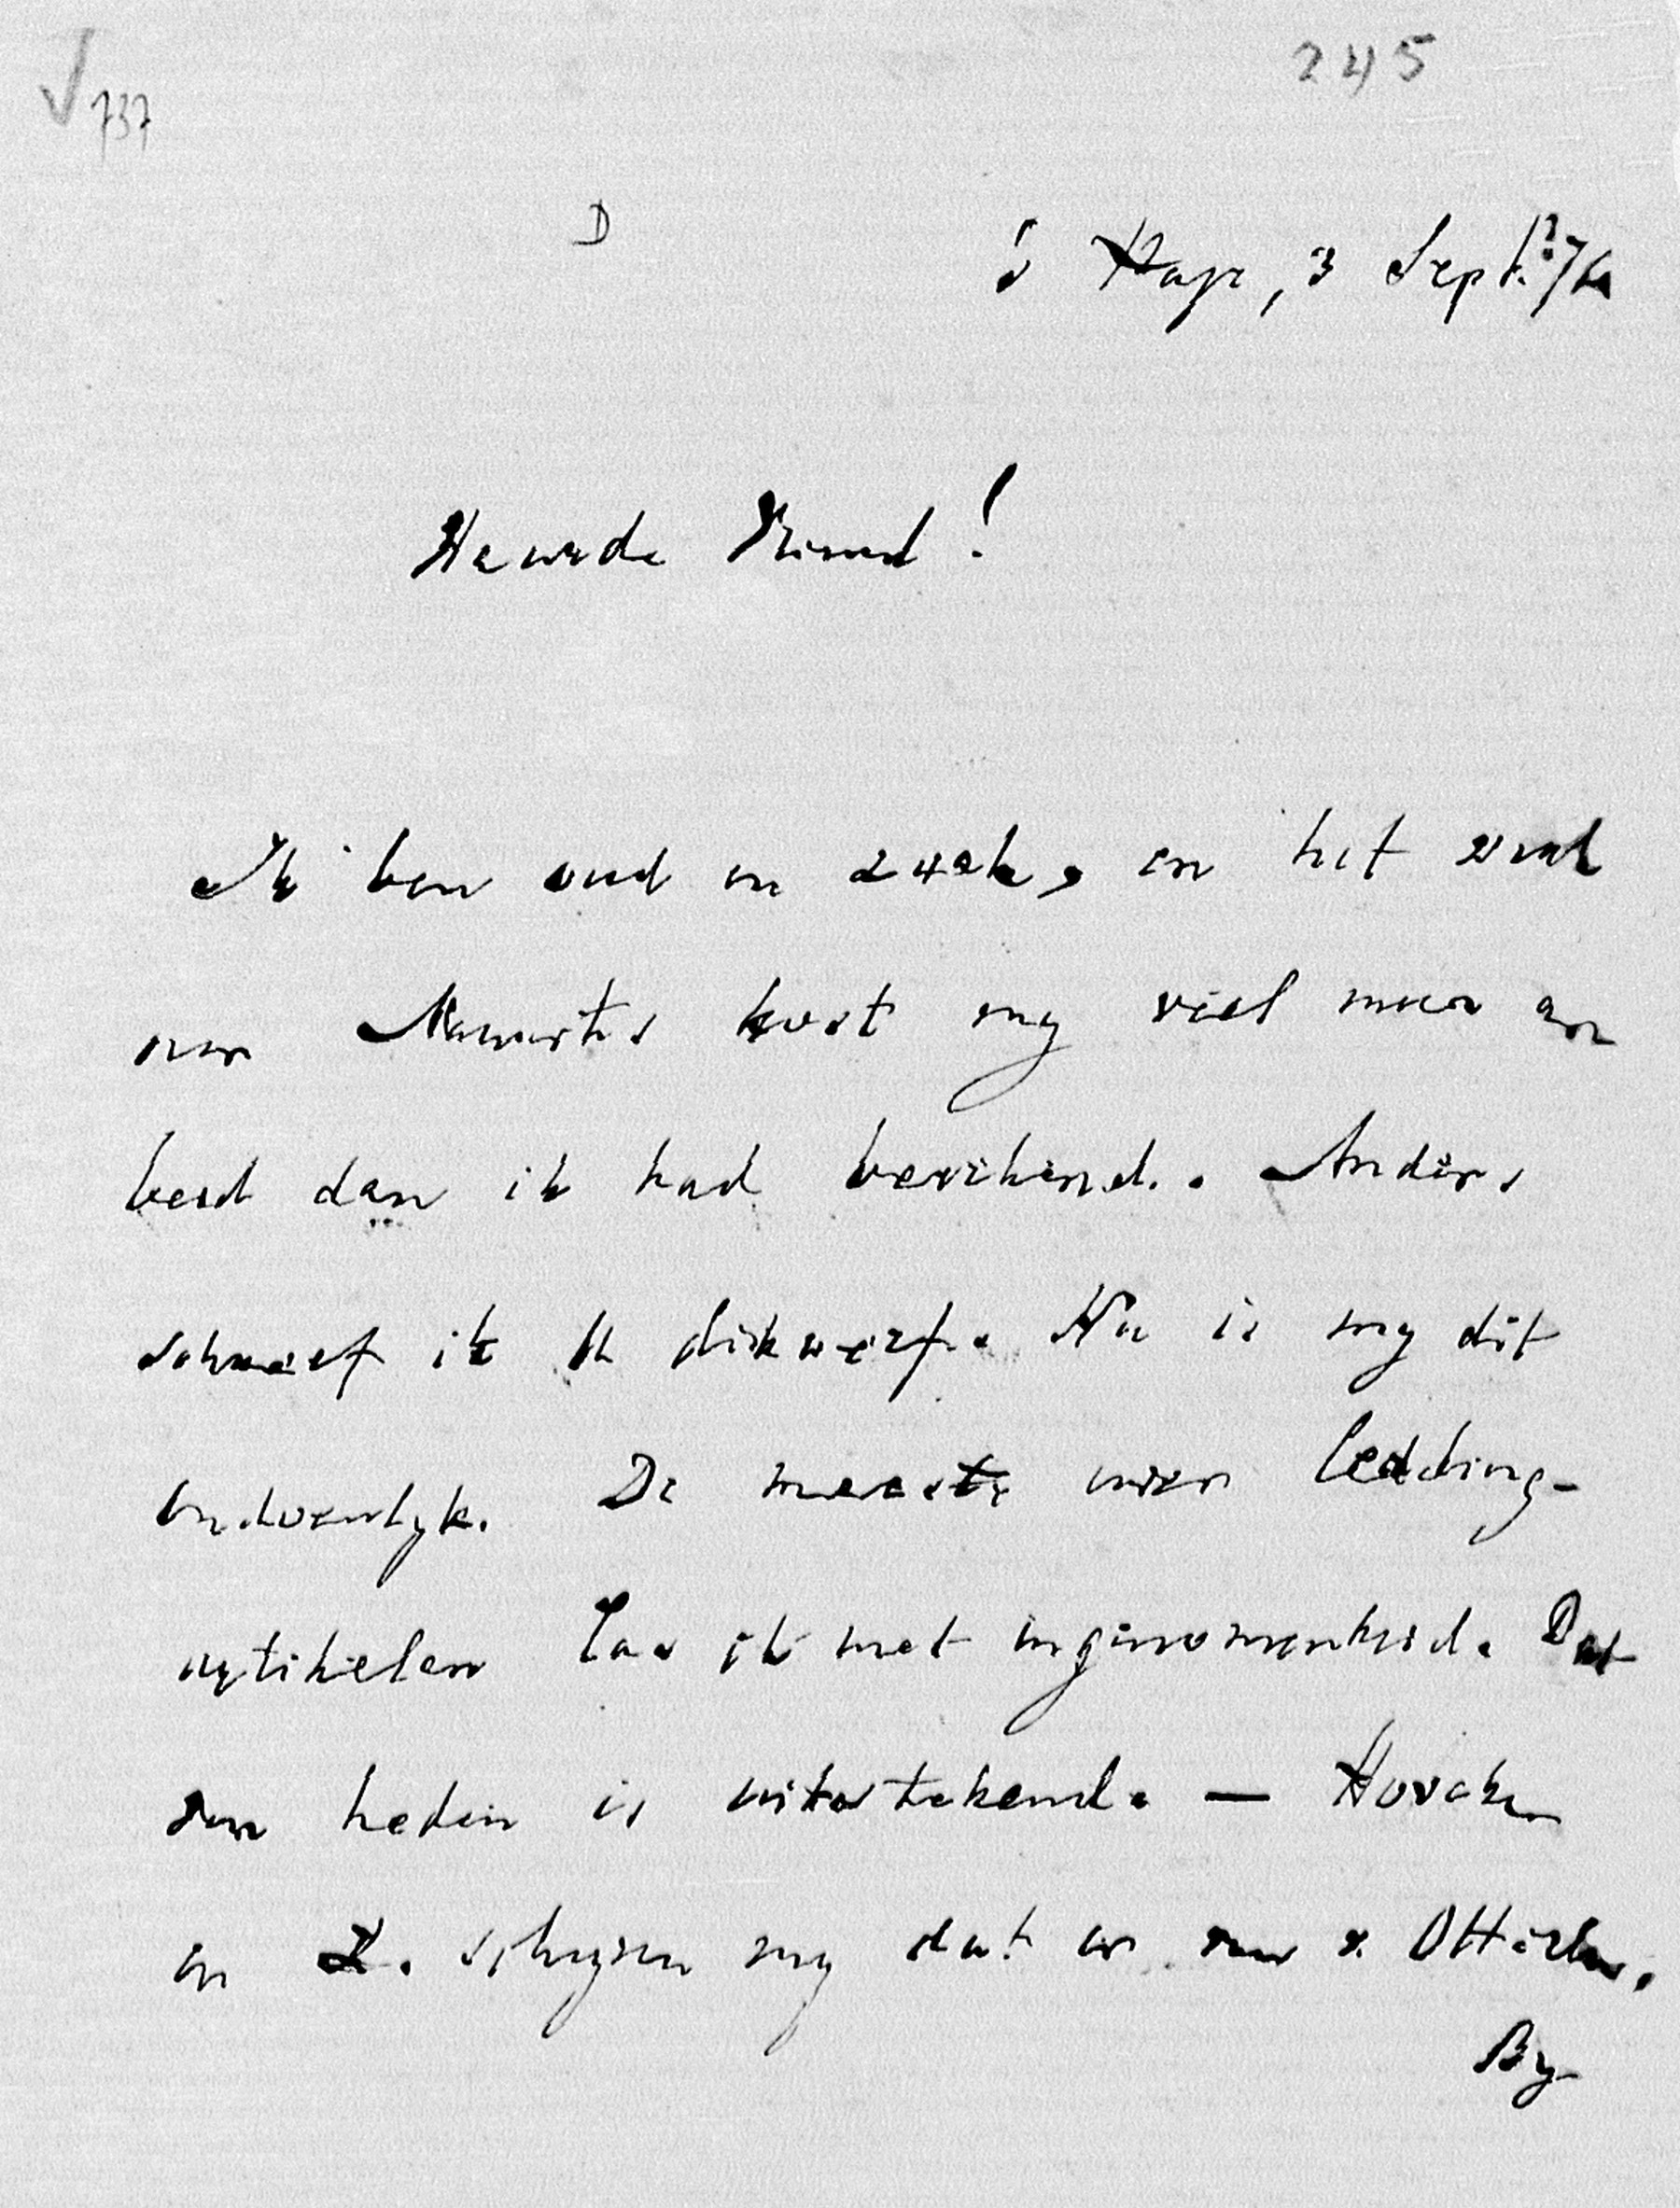 √737 245
D
's Hage, 3 Sept. 74
Waarde Vriend!
Ik ben oud en zwak, en het werk
over Maurits kost my veel meer ar
beid dan ik had berekend. Anders
schreef ik U dikwerf. Nu is my dit
ondoenlyk. De meeste uwer leading-
artikelen las ik met ingenomenheid. Dat
van heden is uitstekend. —
en Z. schynen my dat er van v.
By-